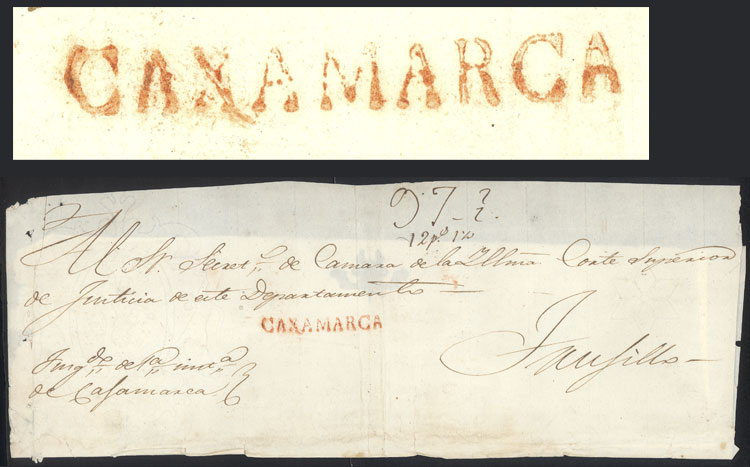 CAXAMARCA
12 p.s
Al Sr. Secret.o de Camara de la Yllma Corte Superior
de Justicia de este Departamento
CAXAMARCA
Trugillo
Juzg.do de 1.a inst.a
de Cajamarca